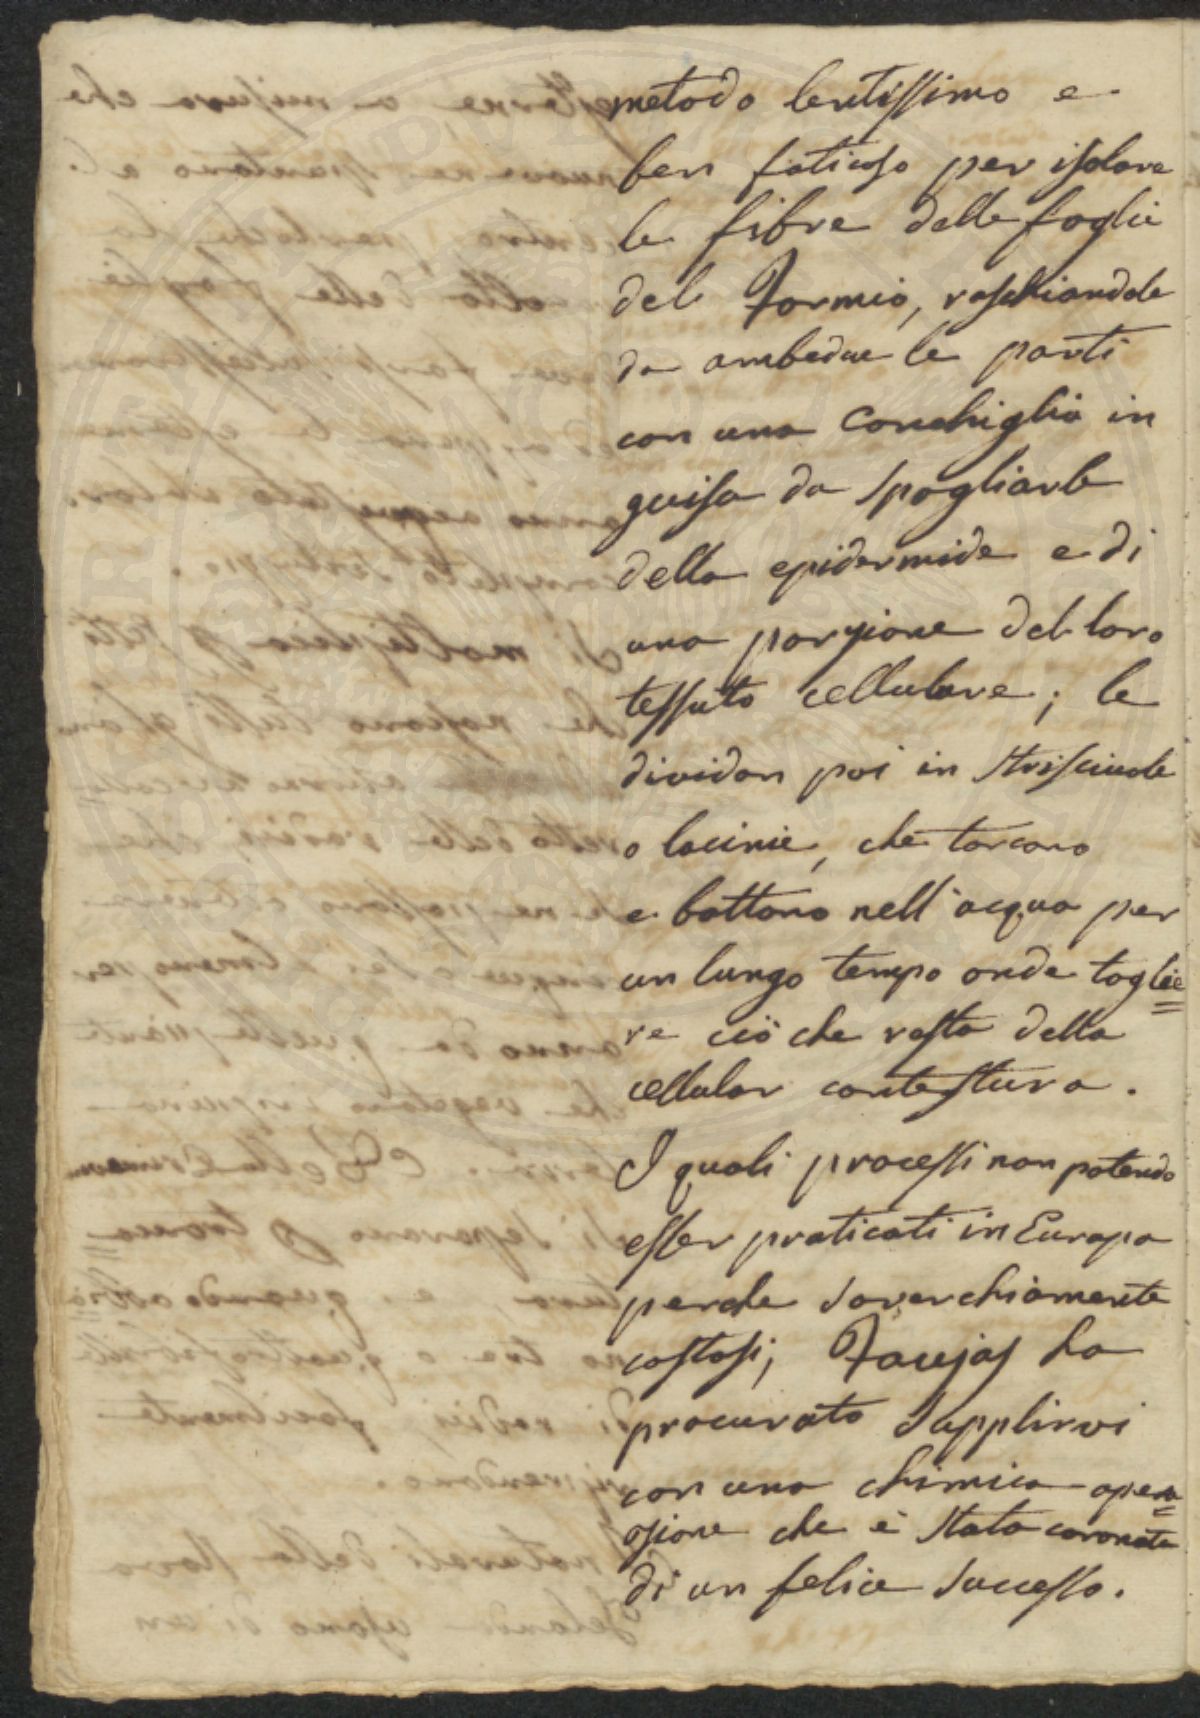 metodo lentissimo e
ben faticoso per isolare
le fibre delle foglie
del Formio, raschiandole
da ambedue le parti
con una conchiglia in
guisa da spogliarle
della epidermide e di
una porzione del loro
tessuto cellulare; le
dividon poi in strisciuole
o lacinie, che torcono
e battono nell'acqua per
un lungo tempo onde toglie=
re ciò che resta della
cellular contestura.
I quali processi non potendo
esser praticati in Europa
perche soverchiamente
costosi; Faujas ha
procurato supplirvi
con una chimica opera=
zione che è stata coronata
di un felice successo.